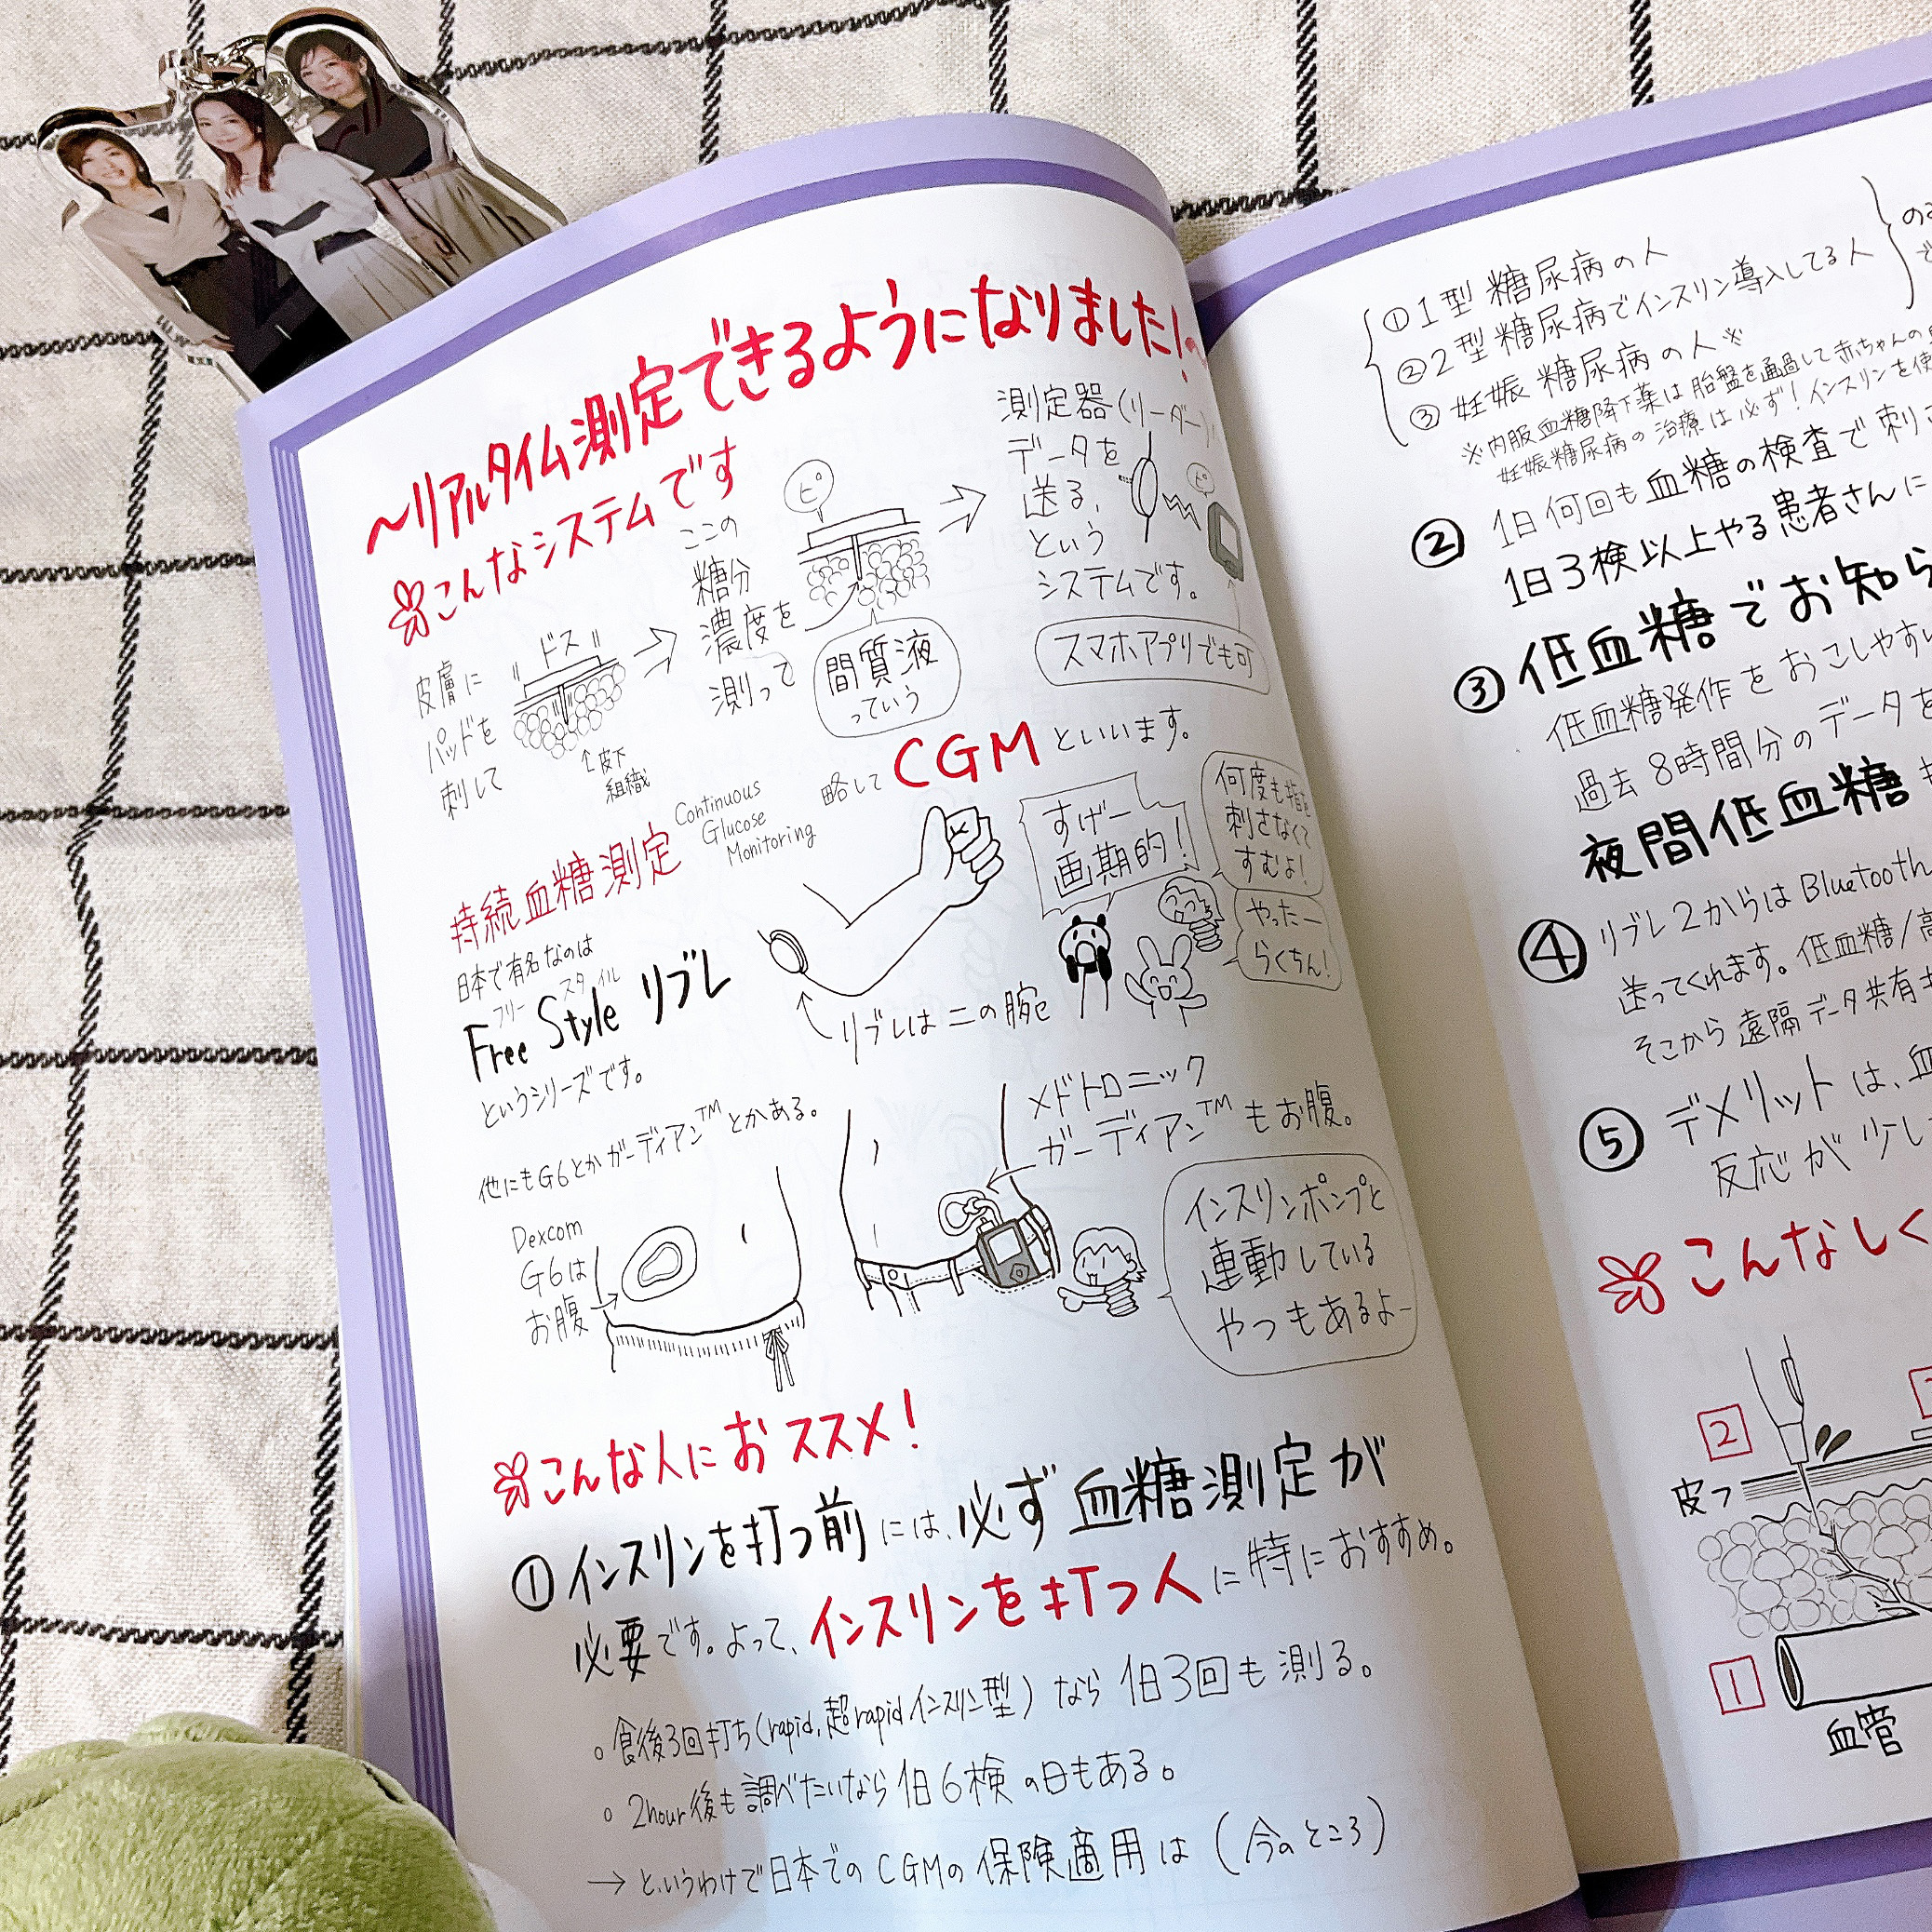 〜リアルタイム測定できるようになりました!〜
こんなシステムです
皮膚に
パッドを
刺して
ドス
↑皮下
組織
ここの
糖分
濃度を
測って
ピ
間質液
っていう
測定器(リーダー)
データを
送る、
という
システムです。
ピ
スマホアプリでも可
持続血糖測定
Continuous
Glucose
Monitoring
略してCGMといいます。
日本で有名なのは
フリー スタイル
Free Style リブレ
というシリーズです。
リブレは二の腕
すげー
画期的!
何度も指を
刺さなくて
すむよ!
やったー
らくちん!
他にもG6とかガーディアン™とかある。
Dexcom
G6は
お腹
メドトロニック
ガーディアン™もお腹。
インスリンポンプと
連動している
やつもあるよー
こんな人におススメ!
①インスリンを打つ前には、必ず血糖測定が
必要です。よって、インスリンを打つ人に特におすすめ。
○食後3回打ち(rapid,超rapidインスリン型)なら1日3回も測る。
○2hour後も調べたいなら1日6検の日もある。
→というわけで日本でのCGMの保険適用は(今のところ)
①1型糖尿病の人
②2型糖尿病でインスリン導入してる人
③妊娠糖尿病の人※
※内服血糖降下薬は胎盤を通過して赤ちゃんの
妊娠糖尿病の治療は必ず!インスリンを使
②1日何回も血糖の検査で刺
1日3検以上やる患者さんに
③低血糖でお知ら
低血糖発作をおこしやすい
過去8時間分のデータを
夜間低血糖
④リブレ2からはBluetooth
送ってくれます。低血糖/高
そこから遠隔データ共有
⑤デメリットは、血
反応が少し
こんなしく
2
皮フ
1
血管